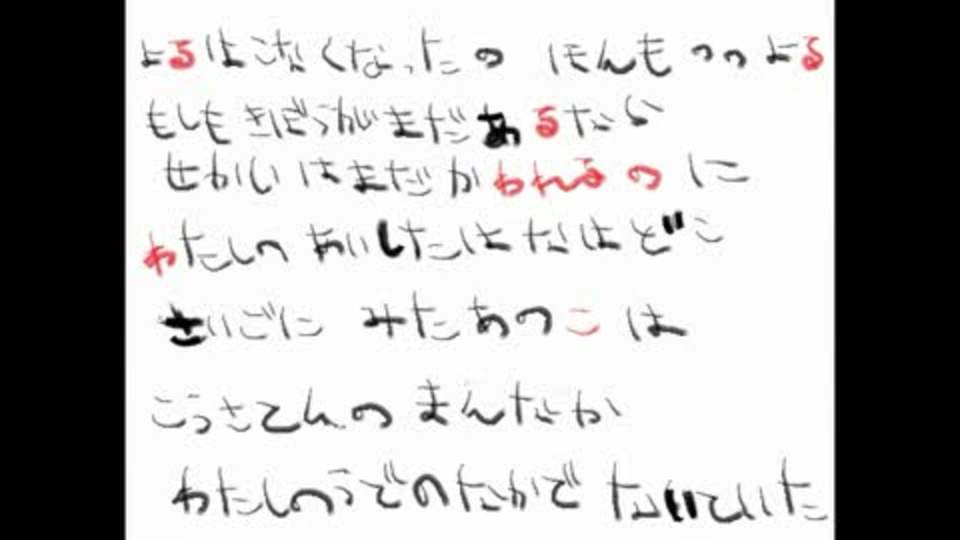 よるはこなくなったの ほんもののよる
もしもきぼうがまだあるなら
せかいはまだかわれるのに
わたしの あいしたはなはどこ
さいごに みたあのこは
こうさてんの まんなか
わたしのうでのなかで ないていた